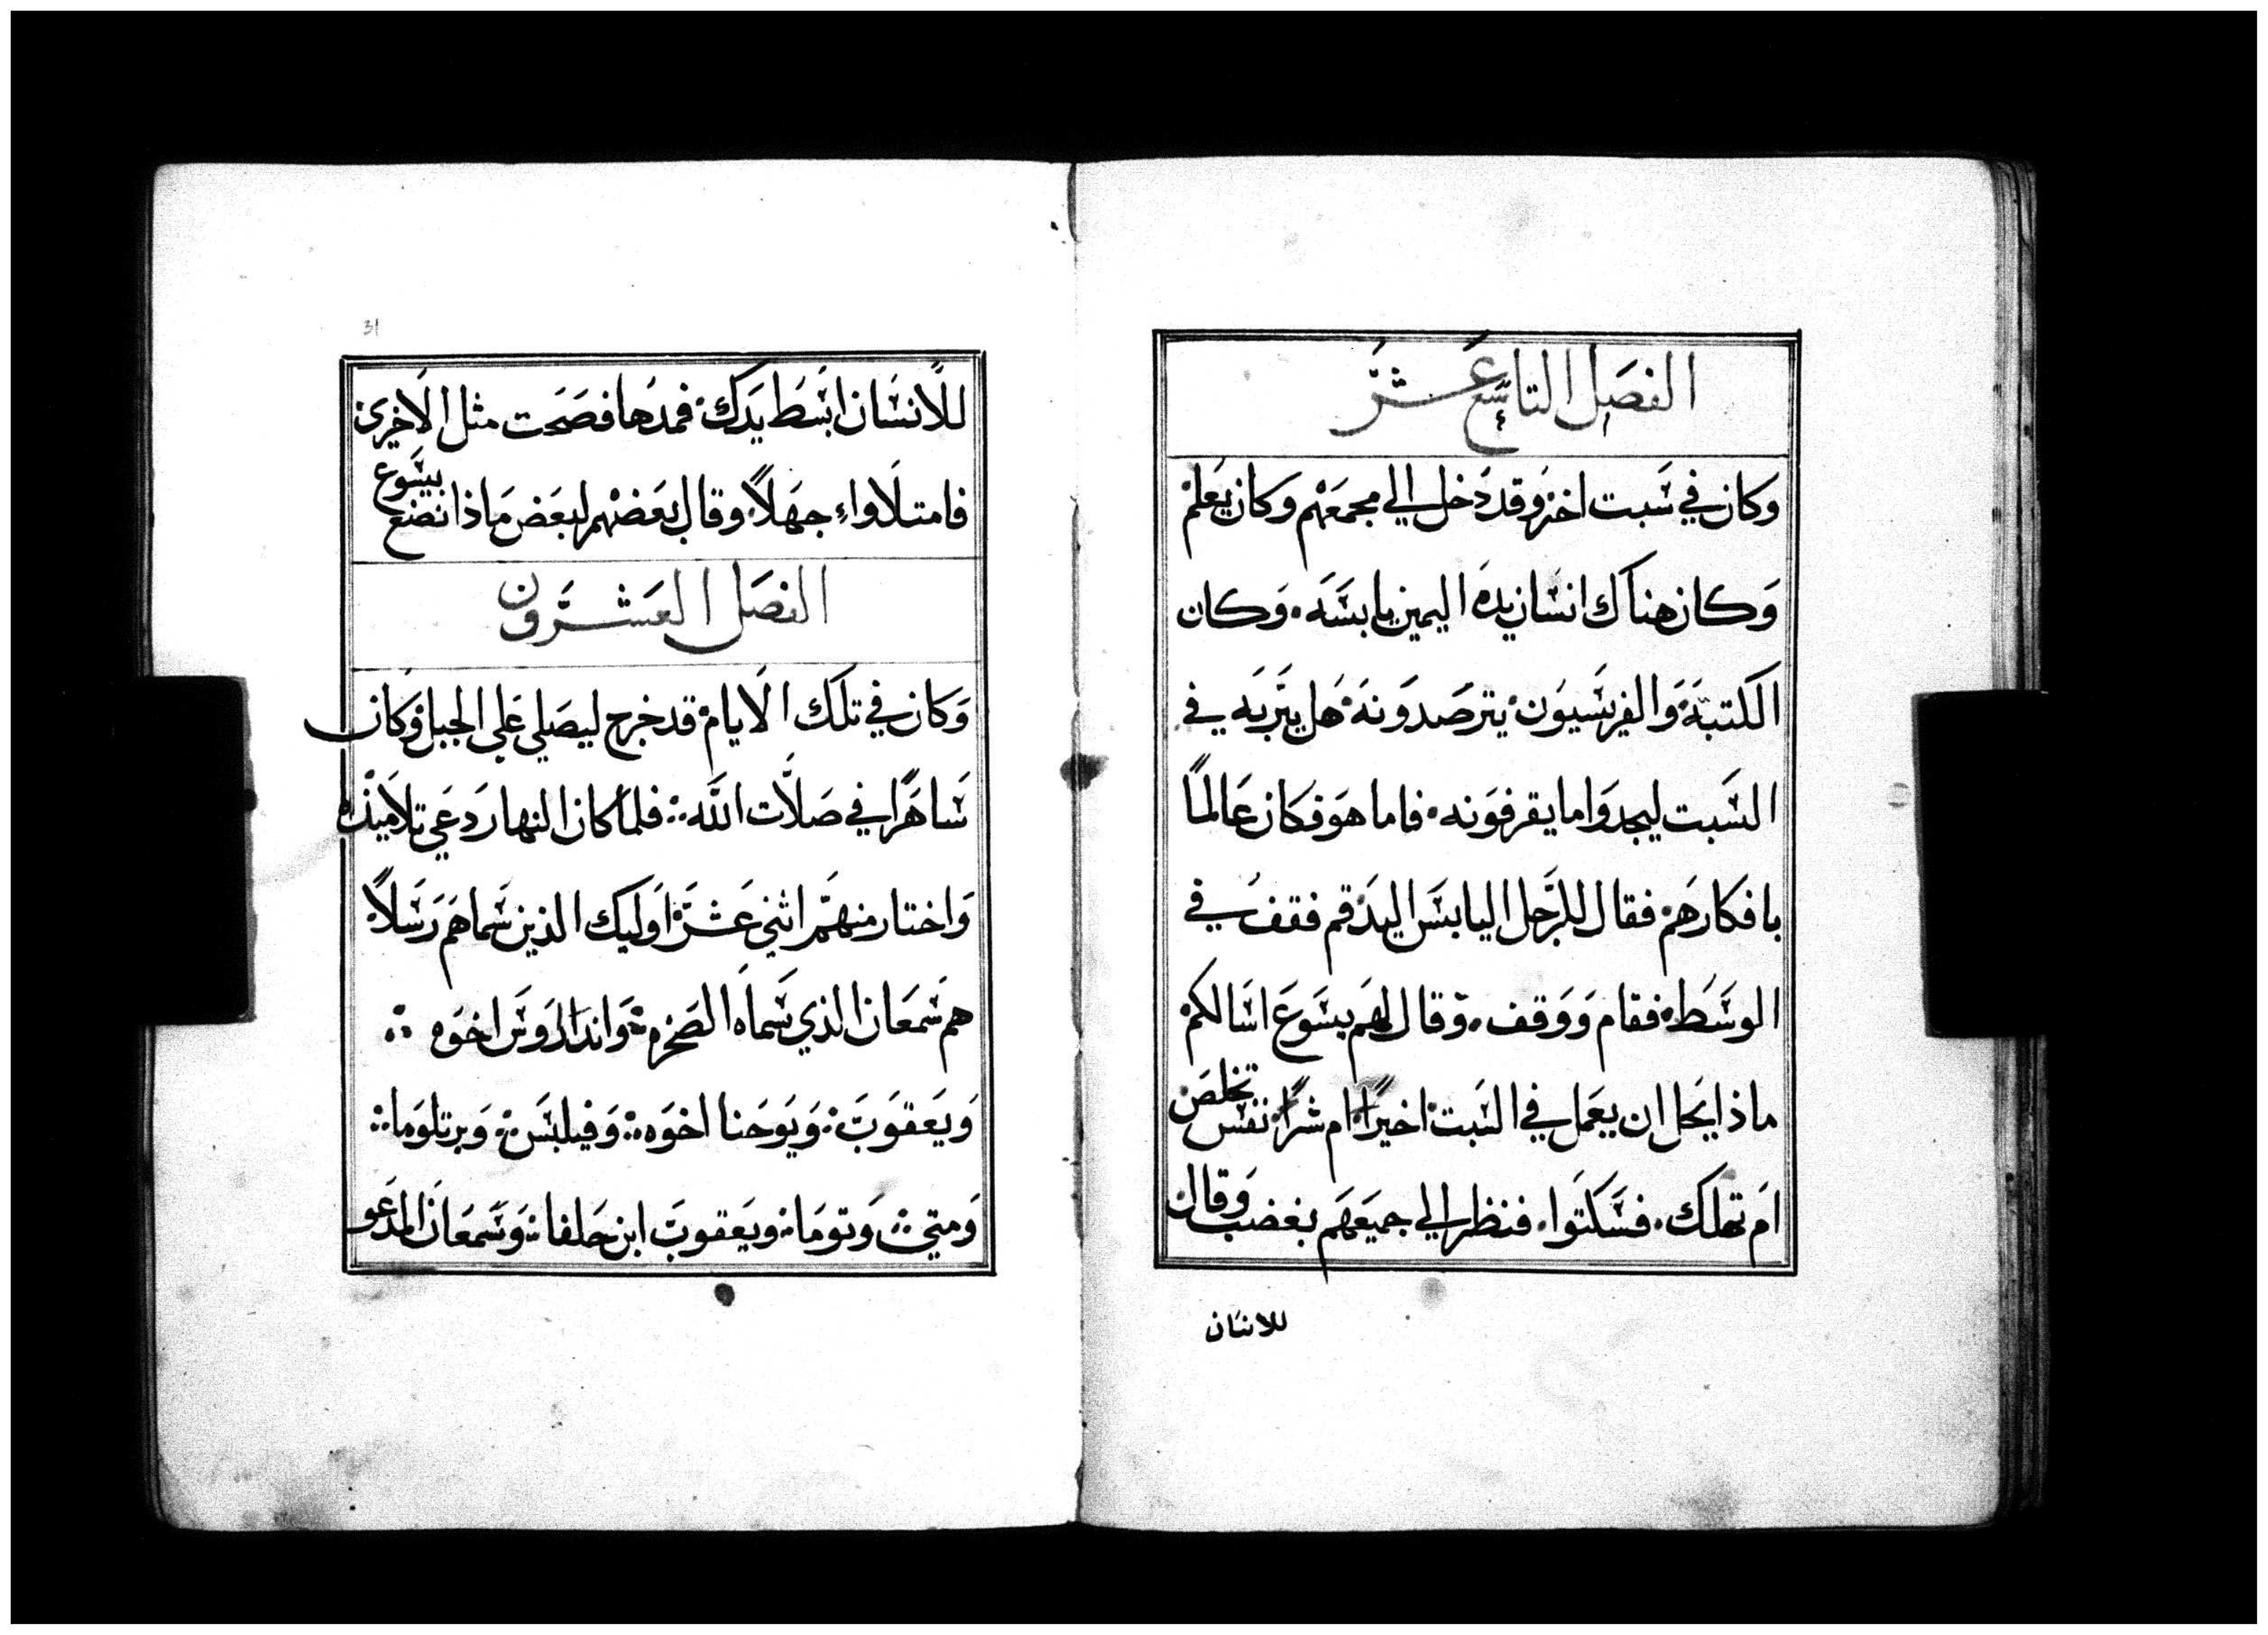 الفصل التاسع عشر
وكان في سبت اخر وقد دخل الي مجمعهم وكان يعلم
وكان هناك انسان يده اليمين يابسه. وكان
الكتبة والفريسيون يترصدونه هل يبريه في
السبت ليجدوا ما يقرفونه. فاما هو فكان عالمًا
بافكارهم. فقال للرجل اليابس اليد قم فقف في
الوسط. فقام ووقف. وقال لهم يسوع اسالكم
ماذا يحل ان يعمل في السبت اخيرًا ام شرًا نفس تخلص
ام تهلك. فسكتوا. فنظر الي جميعهم بغضب وقال
للانسان
31
للانسان ابسط يدك. فمدها فصحت مثل الاخرى
فامتلاواء جهلاً. وقال بعضهم لبعض ماذا نضع بيسوع
الفصل العشرون
وكان في تلك الايام قد خرج ليصلي علي الجبل وكان
ساهرًا في صلات الله. فلما كان النهار دعي تلاميذه
واختار منهم اثني عشر اوليك الذين سماهم رسلاً
هم سمعان الذي سماه الصخره واندراوس اخوه
ويعقوب ويوحنا اخوه وفيلبس وبرتلوما
ومتي وتوما ويعقوب ابن حلفا وسمعان المدعو